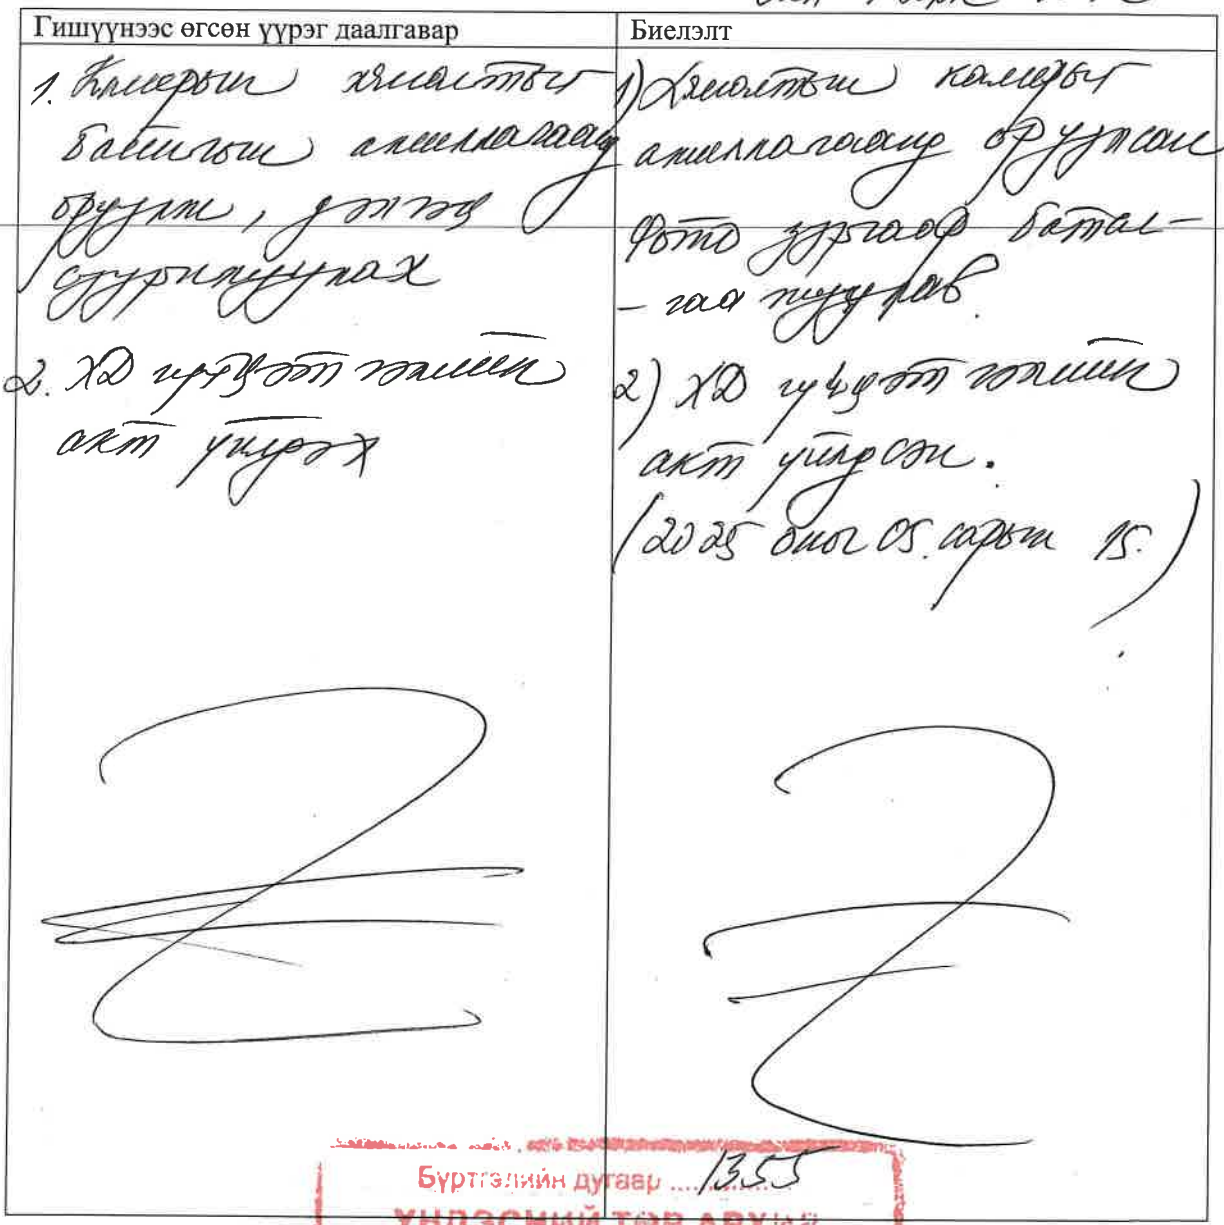 Гишүүнээс өгсөн үүрэг даалгавар
Биелэлт
1. Камерын хяналтыг
байнгын ажиллагаанд
оруулж, дэлгэц
суурилуулах
2. ХД гүйцэтгэлийн
акт үйлдэх
1) Хяналтын камерыг
ажиллагаанд оруулсан
Фото зургаар батал-
- гаа жуулав.
2) ХД гүйцэтгэлийн
акт үйлдсэн.
(2025 оног 05. сарын 15.)
Бүртгэлийн дугаар ..... 1355
ҮНДЭСНИЙ ТӨВ АРХИВ